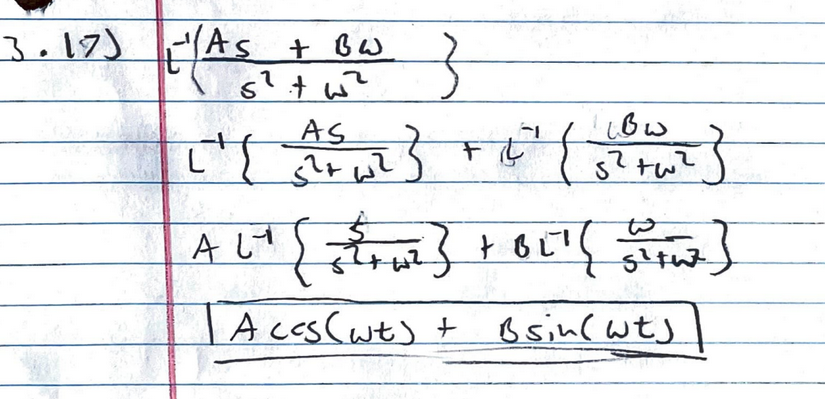 3.17) L⁻¹{ (As + Bω)/(s² + ω²) }
L⁻¹{ As/(s²+ω²) } + L⁻¹{ Bω/(s²+ω²) }
A L⁻¹{ s/(s²+ω²) } + B L⁻¹{ ω/(s²+ω²) }
A cos(ωt) + B sin(ωt)